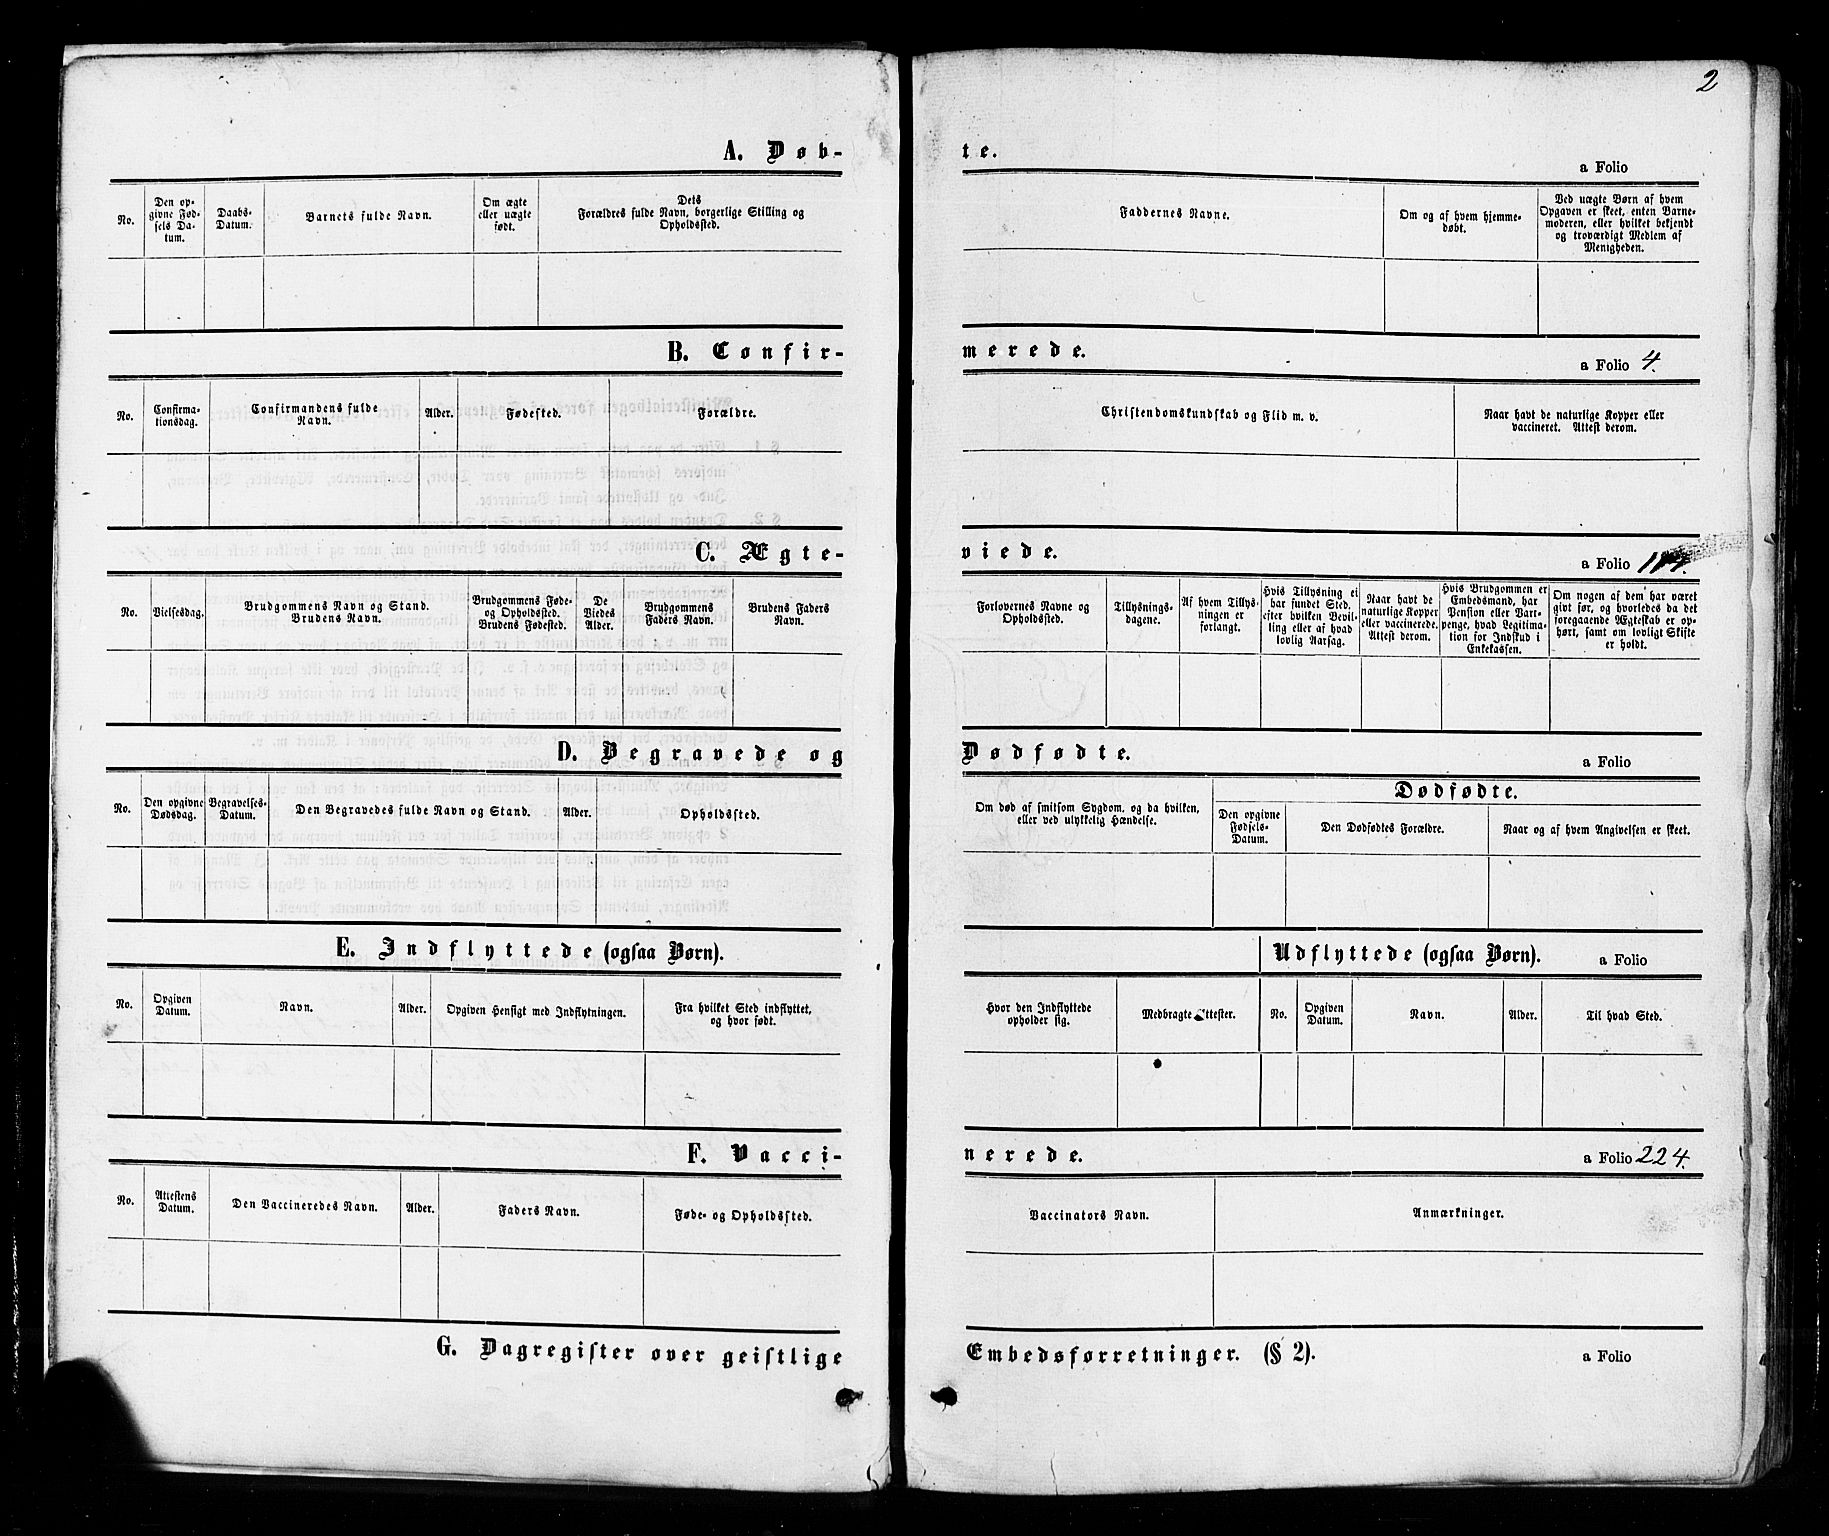 2
A. Døb-
te.
a Folio
No.
Den op-
givne Fød-
sels Da-
tum.
Daabs-
Datum.
Barnets fulde Navn.
Om ægte
eller uægte
født.
Dets
Forældres fulde Navn, borgerlige Stilling og
Opholdssted.
Faddernes Navne.
Om og af hvem hjemme-
døbt.
Ved uægte Børn af hvem
Opgaven er skeet, enten Barne-
moderen, eller hvilket bekjendt
og troværdigt Medlem af
Menigheden.
B. Confir-
merede.
a Folio 4.
No.
Confirma-
tionsdag.
Confirmandens fulde
Navn.
Alder.
Fødested.
Forældre.
Christendomskundskab og Flid m. v.
Naar havt de naturlige Kopper eller
vaccineret. Attest derom.
C. Ægte-
viede.
a Folio
No.
Vielsesdag.
Brudgommens Navn og Stand.
Brudens Navn.
Brudgommens Føde-
og Opholdssted.
Brudens Fødested.
De
Viedes
Alder.
Brudgommens
Faders Navn.
Brudens Faders
Navn.
Forlovernes Navne og
Opholdssted.
Tillysnings-
dagene.
Af hvem Tillys-
ningen er
forlangt.
Hvis Tillysning ei
har fundet Sted,
efter hvilken Bevil-
ling eller af hvad
lovlig Aarsag.
Naar havt de
naturlige Kopper
eller vaccinerede.
Attest derom.
Hvis Brudgommen er
Embedsmand, har
Pension eller Vart-
penge, hvad Legitima-
tion for Indskud i
Enkekassen.
Om nogen af dem har været
givt før, og hvorledes da det
foregaaende Ægteskab er op-
hørt, samt om lovligt Skifte
er holdt.
D. Begravede og
Dødfødte.
a Folio
No.
Den opgivne
Dødsdag.
Begravelses-
Datum.
Den Begravedes fulde Navn og Stand.
Alder.
Opholdssted.
Om død af smitsom Sygdom, og da hvilken,
eller ved ulykkelig Hændelse.
Dødfødte.
Den opgivne
Fødsels-
Datum.
Den Dødfødtes Forældre.
Naar og af hvem Angivelsen er skeet.
E. Indflyttede (ogsaa Børn).
Udflyttede (ogsaa Børn).
a Folio
No.
Opgiven
Datum.
Navn.
Alder.
Opgiven Hensigt med Indflytningen.
Fra hvilket Sted indflyttet,
og hvor født.
Hvor den Indflyttede
opholder sig.
Medbragte Attester.
No.
Opgiven
Datum.
Navn.
Alder.
Til hvad Sted.
F. Vacci-
nerede.
a Folio 224.
No.
Attestens
Datum.
Den Vaccineredes Navn.
Alder.
Faders Navn.
Føde- og Opholdssted.
Vaccinators Navn.
Anmærkninger.
G. Dagregister over geistlige
Embedsforretninger. (§ 2).
a Folio